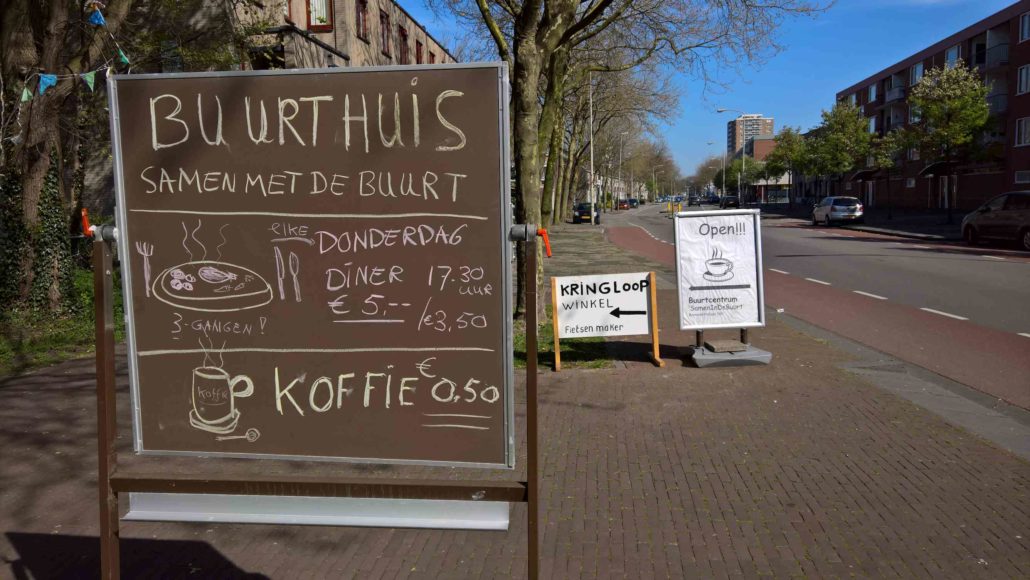 BUURTHUIS
SAMEN MET DE BUURT
elke DONDERDAG
DINER 17.30 UUR
€ 5,-- /€3,50
3-GANGEN!
Koffie
KOFFIE € 0,50
KRINGLOOP
WINKEL
Fietsen maker
Open!!!
Buurtcentrum
'SamenInDeBuurt'